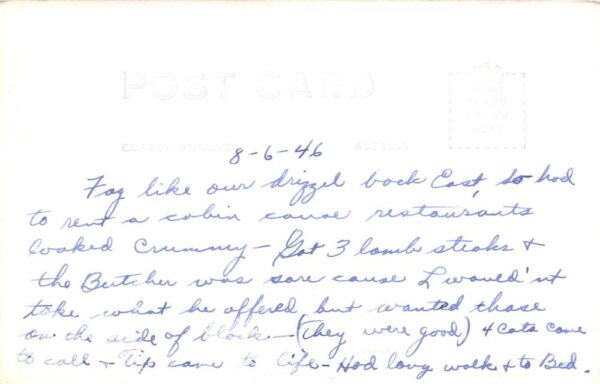 POST CARD
PLACE
STAMP
HERE
CORRESPONDENCE
ADDRESS
8-6-46
Fog like our drizzel back East, so had
to rent a cabin cause restaurants
looked Crummey - Got 3 lamb steaks +
the Butcher was sore cause I would'nt
take what he offered, but wanted those
on the side of block - (They were good) 4 Cats came
to call + Tip came to life - Had long walk + to Bed.